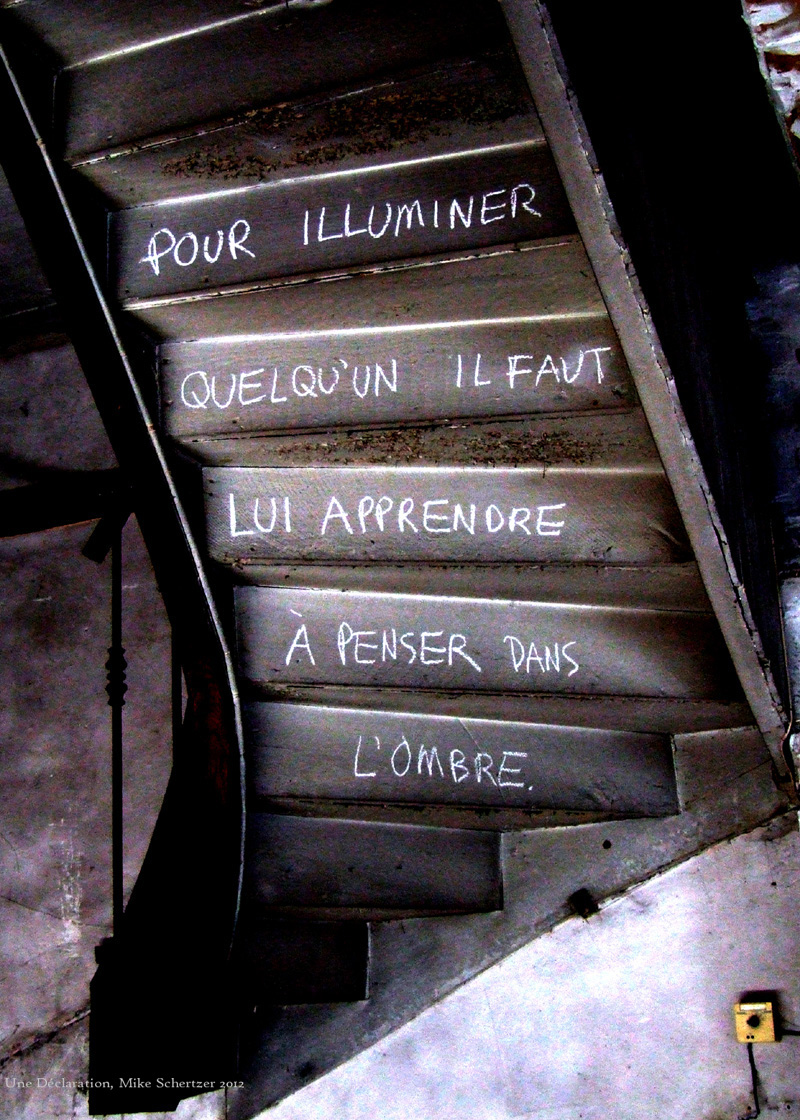 POUR ILLUMINER
QUELQU'UN IL FAUT
LUI APPRENDRE
À PENSER DANS
L'OMBRE.
Une Déclaration, Mike Schertzer 2012